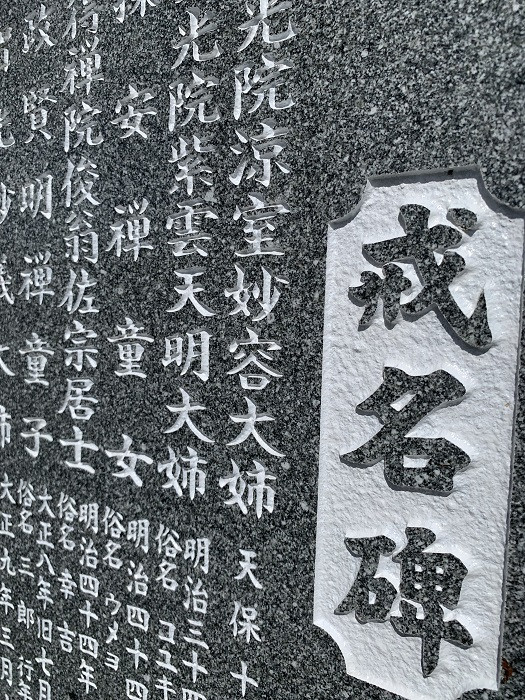 戒名碑
光院涼室妙容大姉 天保十
光院紫雲天明大姉 明治三十四
俗名 コユキ
安禅童女 明治四十四
俗名 ウメヨ
行禅院俊翁佐宗居士 明治四十四年
俗名 幸吉
政賢明禅童子 大正八年旧七月
俗名 三郎 行年
大姉 大正九年三月